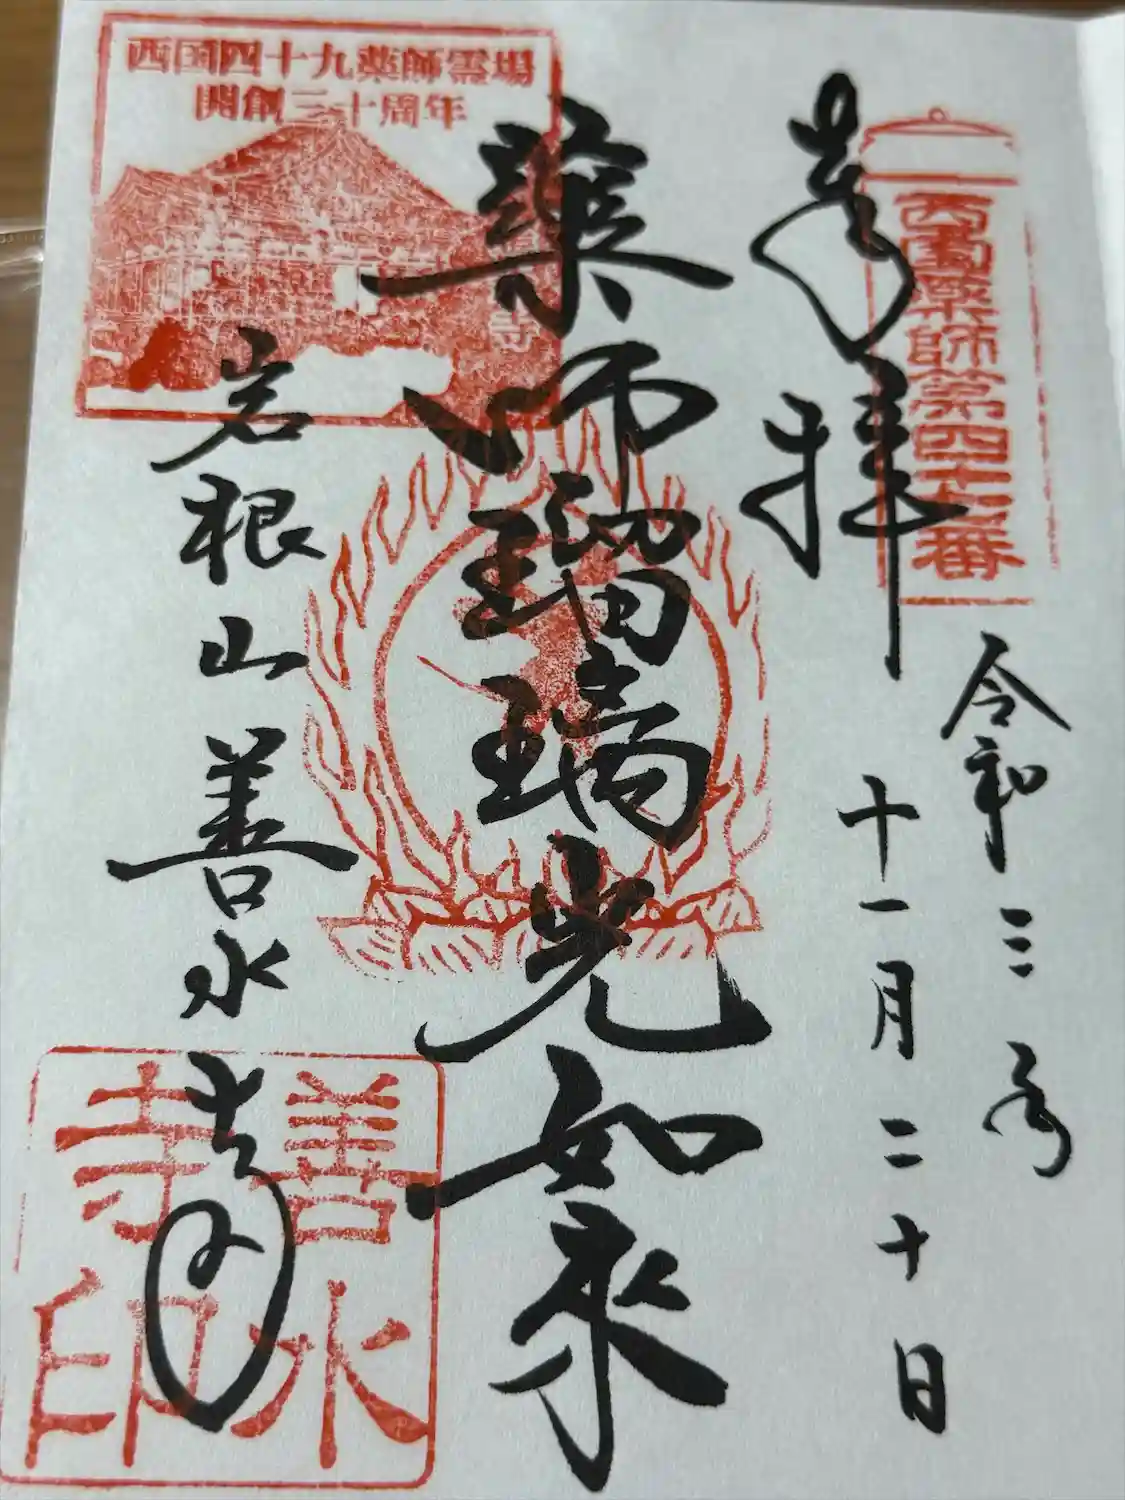 奉拝
西国薬師第四十七番
令和三年
十一月二十日
薬師瑠璃光如来
西国四十九薬師霊場
開創三十周年
岩根山善水寺
善水
寺印